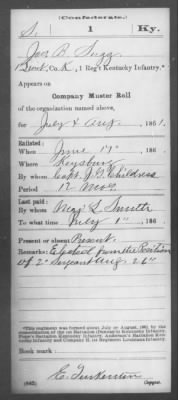 (Confederate.)
S. 1 Ky.
Jas. B. Sugg
1" Lieut, Co. K, 1 Reg't Kentucky Infantry.*
Appears on
Company Muster Roll
of the organization named above,
for July & Aug., 1861.
Enlisted:
When June 17", 186 .
Where Keysburg
By whom Capt. J. G. Childress
Period 12 Mos.
Last paid:
By whom Maj. L. Smith
To what time July 1", 186 .
Present or absent Present.
Remarks: from the Position
of 2" Sergeant Aug 26"
*This regiment was formed about July or August, 1861, by the
consolidation of the 1st Battalion (Desha's) Kentucky Infantry,
Pope's Battalion Kentucky Infantry, Anderson's Battalion Kentucky
Infantry and Company H, 1st Regiment Louisiana Infantry.
Book mark:
(642) Copyist.